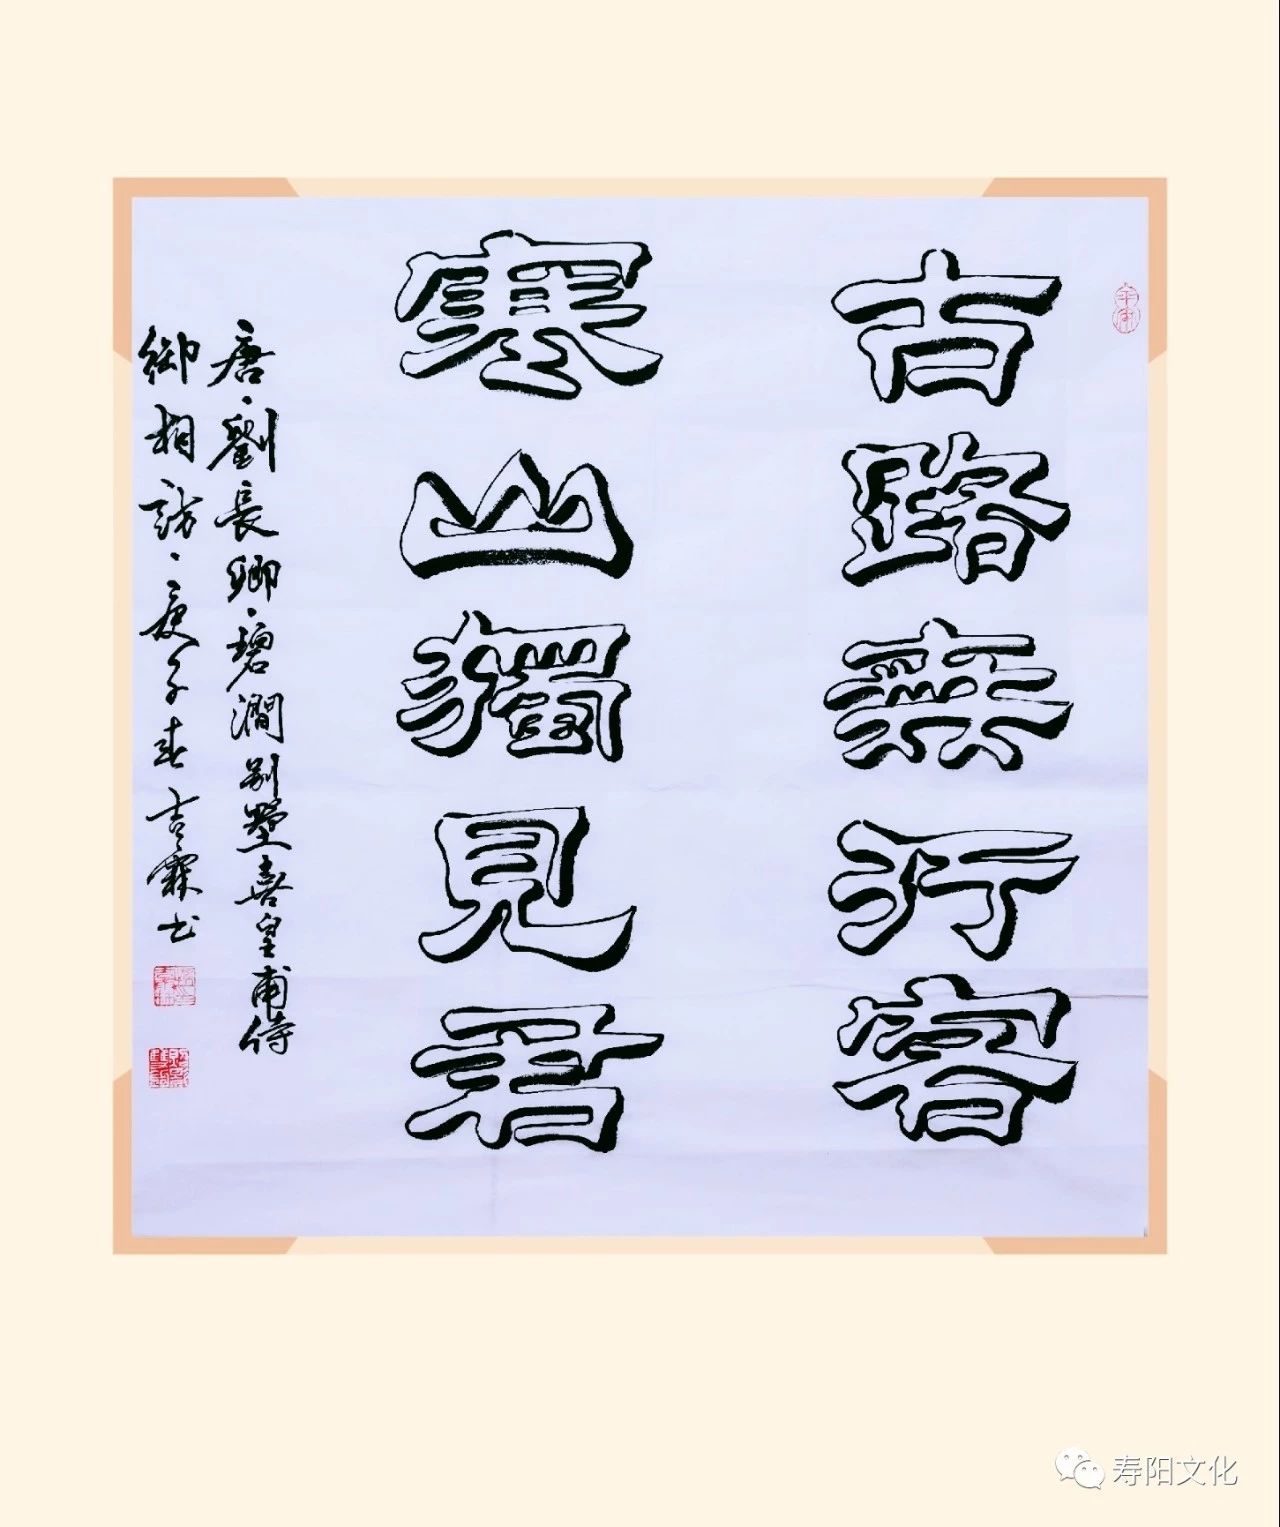 古路無行客
寒山獨見君
唐·劉長卿·碧澗别墅喜皇甫侍
御相訪·庚子春吉霖书
寿阳文化